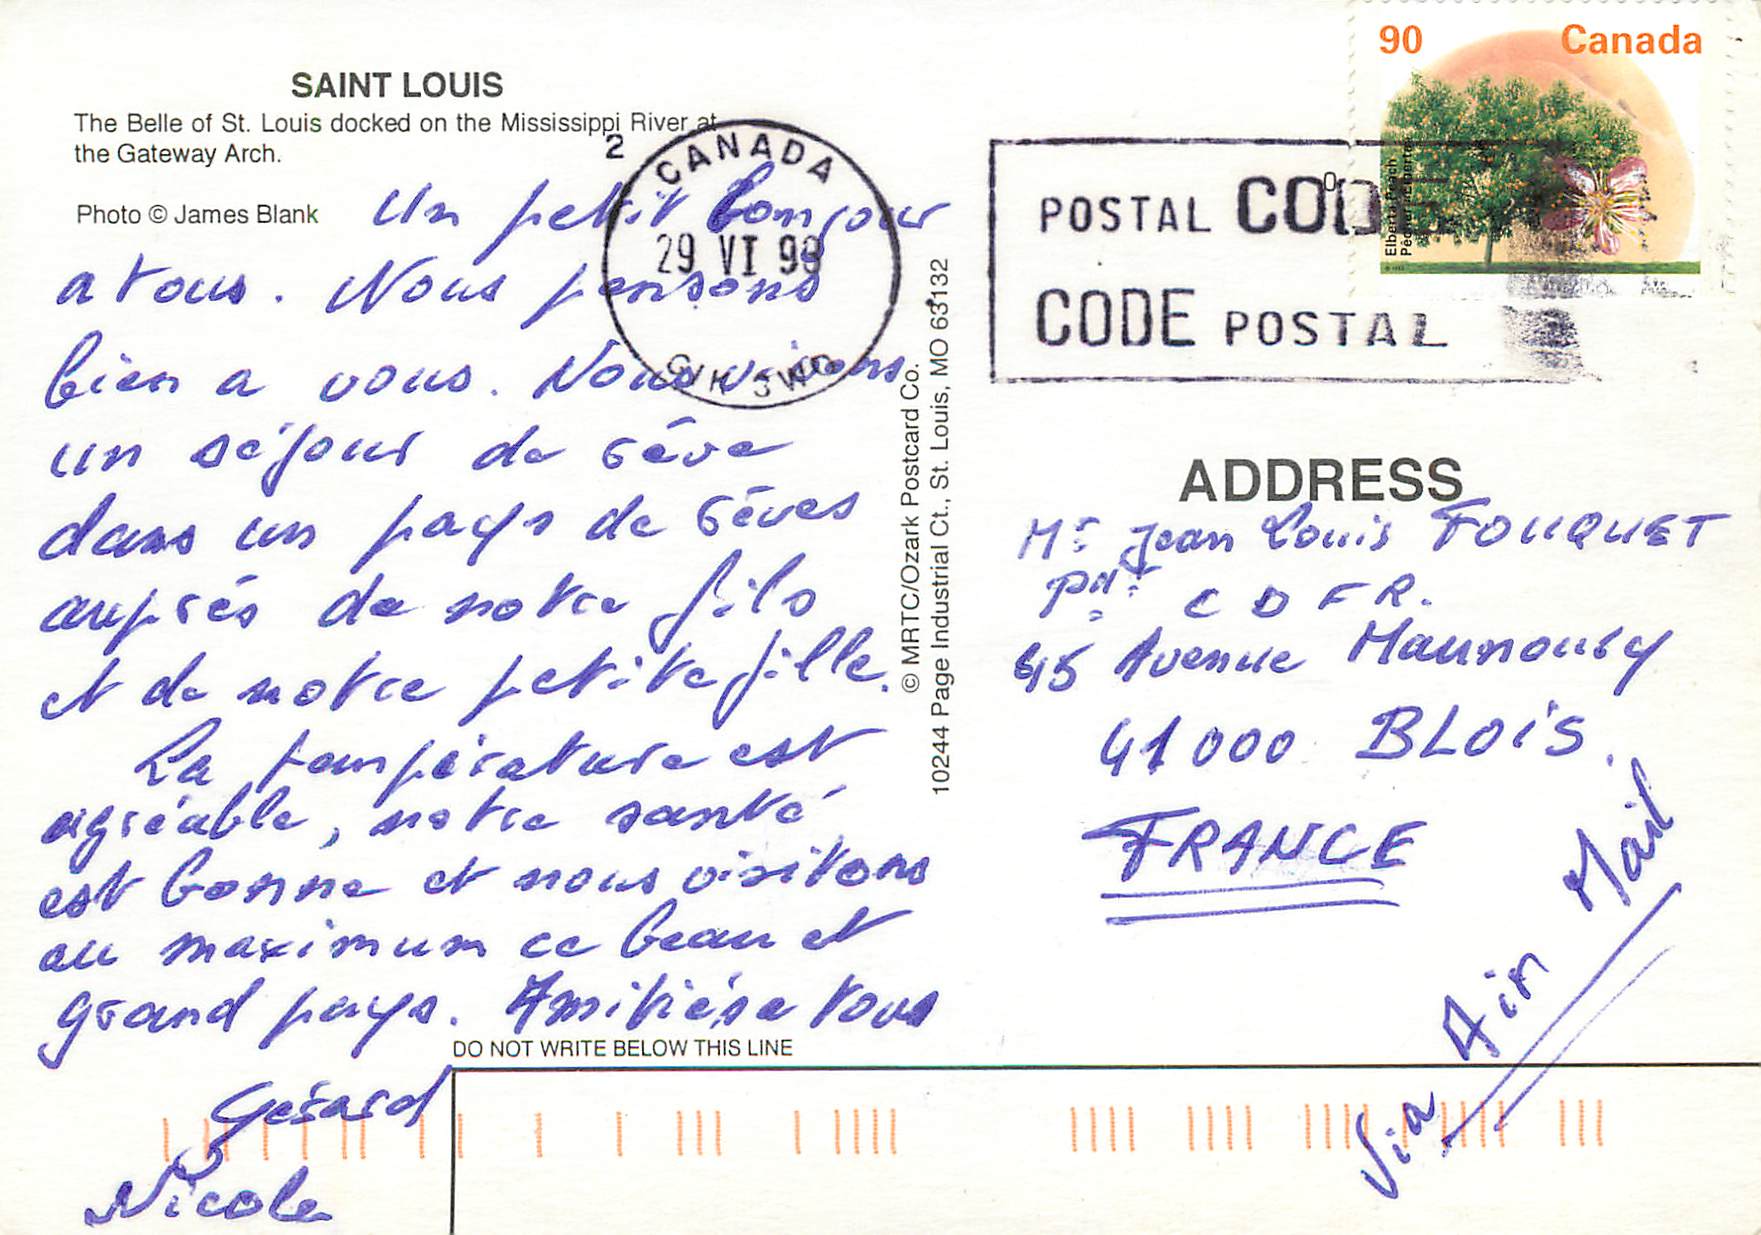 SAINT LOUIS
The Belle of St. Louis docked on the Mississippi River at
the Gateway Arch.
Photo © James Blank
Un petit bonjour
a tous. Nous pensons
bien a vous. Nous vivons
un séjour de rêve
dans un pays de rêves
auprés de notre fils
et de notre petite fille.
La température est
agréable, notre santé
est bonne et nous visitons
au maximum ce beau et
grand pays. Amitiés a tous
Gérard
Nicole
2
CANADA
29 VI 98
© MRTC/Ozark Postcard Co.
10244 Page Industrial Ct., St. Louis, MO 63132
POSTAL CODE
CODE POSTAL
90 Canada
Elberta Peach
ADDRESS
Mr Jean Louis FOUQUET
C D F R.
45 Avenue Maunoury
41000 BLOIS.
FRANCE
Via Air Mail
DO NOT WRITE BELOW THIS LINE